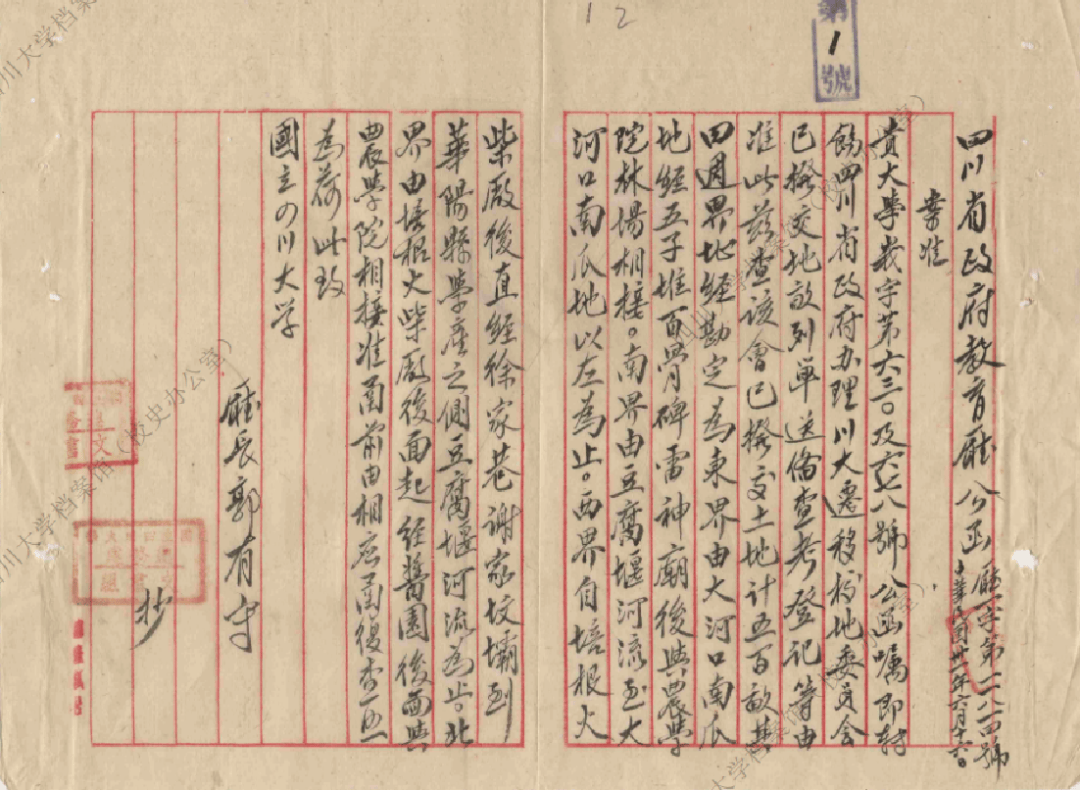 12
第1號
四川省政府教育廳公函
廳字第一二八一四號
中華民國卅一年六月十六。
案准
貴大學義字第六三〇及六七八號公函囑即轉
飭四川省政府办理川大遷移校地委員會
已撥交地畝列單送備查考登記等由
准此茲查該會已撥交土地計五百畝其
四週界地經勘定為東界由大河口南瓜
地經五子堆百骨碑雷神廟後與農學
院林場相接。南界由豆腐堰河流至大
河口南瓜地以左為止。西界自培根火
柴廠後直經徐家巷謝家坟壩到
華陽縣學產之側豆腐堰河流為止。北
界由培根火柴廠後面起經醬園後面與
農學院相接准函前由相應函復查照
為荷此致
國立四川大学
廳長郭有守
抄
四川大学档案馆（校史办公室）